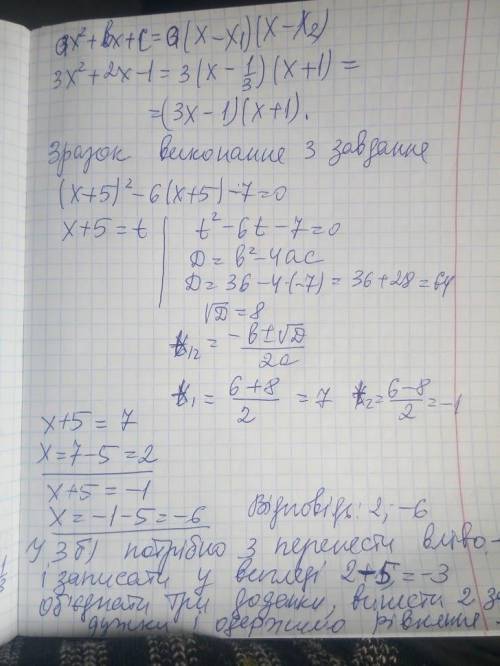 ax²+bx+c=a(x-x₁)(x-x₂)
3x²+2x-1=3(x-1/3)(x+1)=
=(3x-1)(x+1).
Зразок виконання 3 завдання
(x+5)²-6(x+5)-7=0
x+5=t
t²-6t-7=0
D=b²-4ac
D=36-4·(-7)=36+28=64
√D=8
t₁₂=(-b±√D)/2a
t₁=(6+8)/2=7 t₂=(6-8)/2=-1
x+5=7
x=7-5=2
x+5=-1
x=-1-5=-6
Відповідь: 2; -6
У 3б) потрібно 3 перенести вліво,
і записати у вигляді 2-5=-3
об'єднати три доданки, винести 2 за
дужки і одержимо рівняння